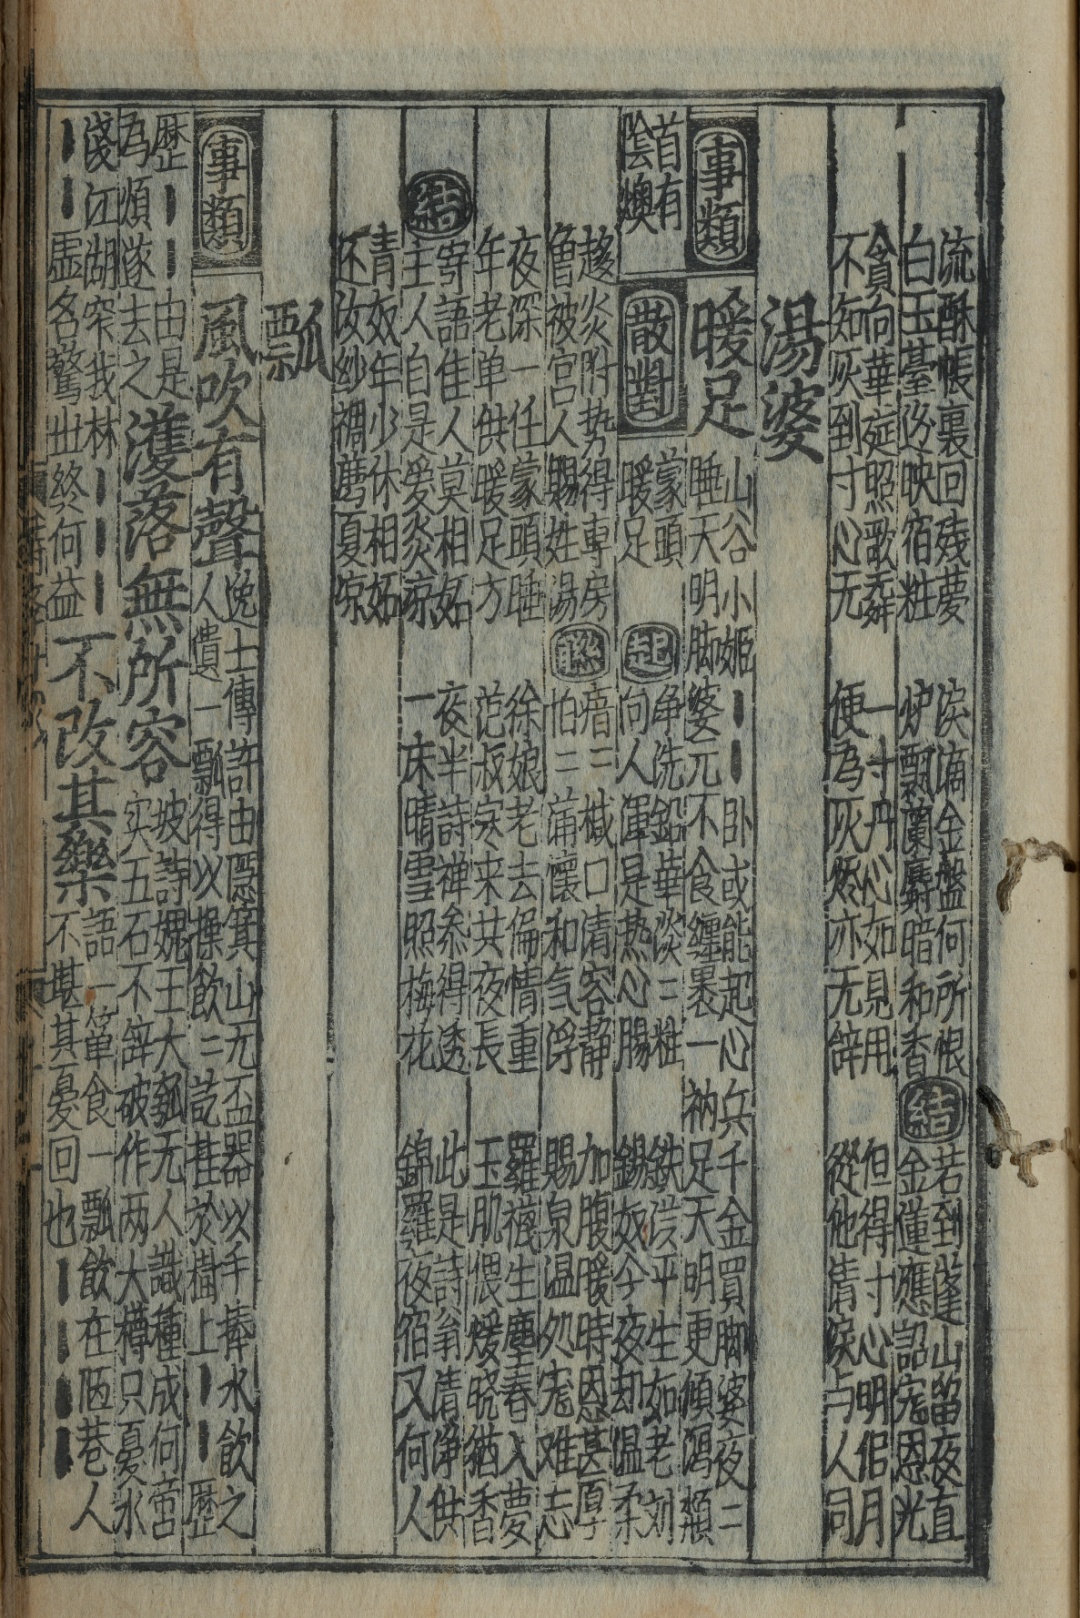 流酥帳裏回殘夢　淚滴金盤何所恨　結　若到蓬山留夜直
白玉臺边映宿粧　炉飄蘭麝暗和香　金蓮應詔寵恩光
貪向華筵照歌舞　一寸丹心如見用　但得寸心明佀月
不知灰到寸心无　便為灰燼亦无辞　從他清淚与人同
湯婆
事類　暖足　山谷小姬｜｜卧或能起心兵千金買脚婆夜二
睡天明脚婆元不食纏裹一衲足天明更傾瀉頮
首有
陰燠
散對　蒙頭
暖足
起　淨洗鉛華淡二粧　鉄漢平生如老刘
向人渾是热心腸　錫奴今夜却温柔
趍炎附势得專房　聯　瘖二緘口清容静　加腹暖時恩甚厚
曾被宫人賜姓湯　怕二蒲懷和气浮　賜泉温处宠难忘
夜深一任蒙頭睡　徐娘老去偏情重　羅襪生塵春入夢
年老单供暖足方　范叔寒来共夜長　玉肌偎煖晓猶香
結　寄語佳人莫相妬　夜半詩禅参得透　此是詩翁清净供
主人自是爱炎凉　一床晴雪照梅花　錦羅夜宿又何人
青奴年少休相妬
还汝纱裯磨夏凉
瓢
事類　風吹有聲　逸士傳許由隱箕山无盃器以手捧水飲之
人遺一瓢得以操飲二訖挂於樹上｜｜歷
歷｜｜由是
為煩遂去之
濩落無所容　坡詩媿王大瓠无人識種成何啻
实五石不辞破作两大樽只憂水
浅江湖窄我林｜｜｜
｜｜虚名驚世終何益
不改其樂　語一箪食一瓢飲在陋巷人
不堪其憂回也｜｜｜｜